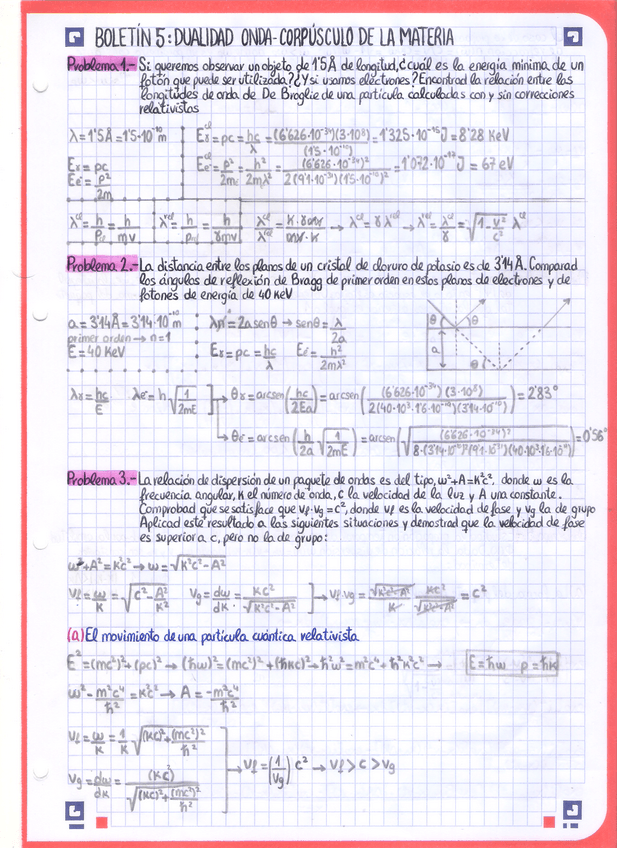 BOLETÍN 5: DUALIDAD ONDA-CORPÚSCULO DE LA MATERIA
Problema 1.- Si queremos observar un objeto de 1'5 Å de longitud, ¿cuál es la energía mínima de un
fotón que puede ser utilizada? ¿Y si usamos electrones? Encontrad la relación entre las
longitudes de onda de De Broglie de una partícula calculadas con y sin correcciones
relativistas
λ = 1'5 Å = 1'5·10⁻¹⁰ m   Eγ^cl = pc = hc/λ = (6'626·10⁻³⁴)(3·10⁸)/(1'5·10⁻¹⁰) = 1'325·10⁻¹⁵ J = 8'28 KeV
Eγ = pc   Ee^cl = p²/2m = h²/2mλ² = (6'626·10⁻³⁴)²/2(9'1·10⁻³¹)(1'5·10⁻¹⁰)² = 1'072·10⁻¹⁷ J = 67 eV
Ee = p²/2m
λ^cl = h/p_cl = h/mv   λ^rel = h/p_rel = h/γmv   λ^cl/λ^rel = h·γmv/mv·h → λ^cl = γλ^rel → λ^rel = λ^cl/γ = √(1-v²/c²) λ^cl
Problema 2.- La distancia entre los planos de un cristal de cloruro de potasio es de 3'14 Å. Comparad
los ángulos de reflexión de Bragg de primer orden en estos planos de electrones y de
fotones de energía de 40 KeV
a = 3'14 Å = 3'14·10⁻¹⁰ m   λn = 2a senθ → senθ = λ/2a
primer orden → n=1
E = 40 KeV   Eγ = pc = hc/λ   Ee = h²/2mλ²
θ θ a θ
λγ = hc/E   λe = h√(1/2mE)   → θγ = arcsen(hc/2Ea) = arcsen((6'626·10⁻³⁴)(3·10⁸)/2(40·10³·1'6·10⁻¹⁹)(3'14·10⁻¹⁰)) = 2'83°
→ θe = arcsen(h/2a √(1/2mE)) = arcsen(√((6'626·10⁻³⁴)²/8·(3'14·10⁻¹⁰)²(9'1·10⁻³¹)(40·10³·1'6·10⁻¹⁹))) = 0'56°
Problema 3.- La relación de dispersión de un paquete de ondas es del tipo, ω²+A=K²c², donde ω es la
frecuencia angular, K el número de onda, c la velocidad de la luz y A una constante.
Comprobad que se satisface que Vf·Vg = c², donde Vf es la velocidad de fase y Vg la de grupo
Aplicad este resultado a las siguientes situaciones y demostrad que la velocidad de fase
es superior a c, pero no la de grupo:
ω²+A² = K²c² → ω = √(K²c²-A²)
Vf = ω/K = √(c²-A²/K²)   Vg = dω/dK = Kc²/√(K²c²-A²)   → Vf·Vg = √(K²c²-A²)/K · Kc²/√(K²c²-A²) = c²
(a) El movimiento de una partícula cuántica relativista
E² = (mc²)²+(pc)² → (ħω)² = (mc²)²+(ħKc)² → ħ²ω² = m²c⁴+ħ²K²c² →   E=ħω   p=ħK
ω² - m²c⁴/ħ² = K²c² → A = -m²c⁴/ħ²
Vf = ω/K = 1/K √((Kc)²+(mc²)²/ħ²)
→ Vf = (1/Vg) c² → Vf > c > Vg
Vg = dω/dK = (Kc²)/√((Kc)²+(mc²)²/ħ²)